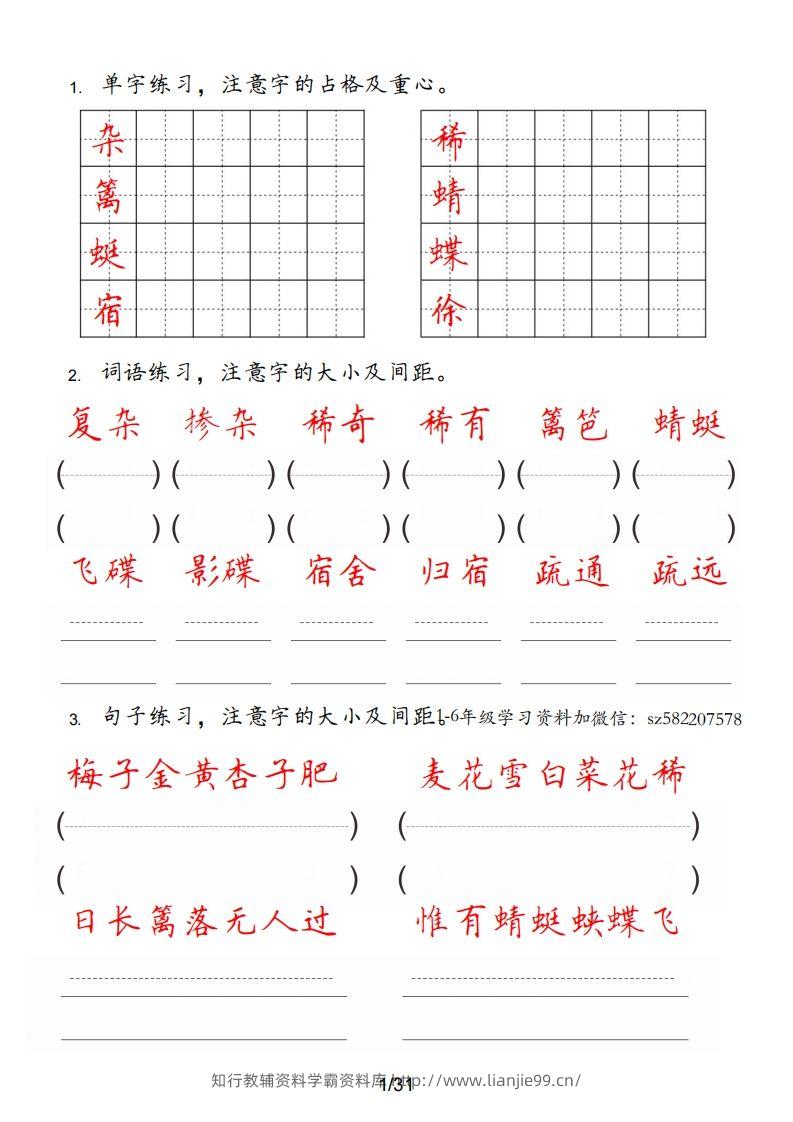 1. 单字练习，注意字的占格及重心。
杂 稀
篱 蜻
蜓 蝶
宿 徐
2. 词语练习，注意字的大小及间距。
复杂 掺杂 稀奇 稀有 篱笆 蜻蜓
飞碟 影碟 宿舍 归宿 疏通 疏远
3. 句子练习，注意字的大小及间距。1-6年级学习资料加微信：sz582207578
梅子金黄杏子肥 麦花雪白菜花稀
日长篱落无人过 惟有蜻蜓蛱蝶飞
知行教辅资料学霸资料库 http://www.lianjie99.cn/
1/31